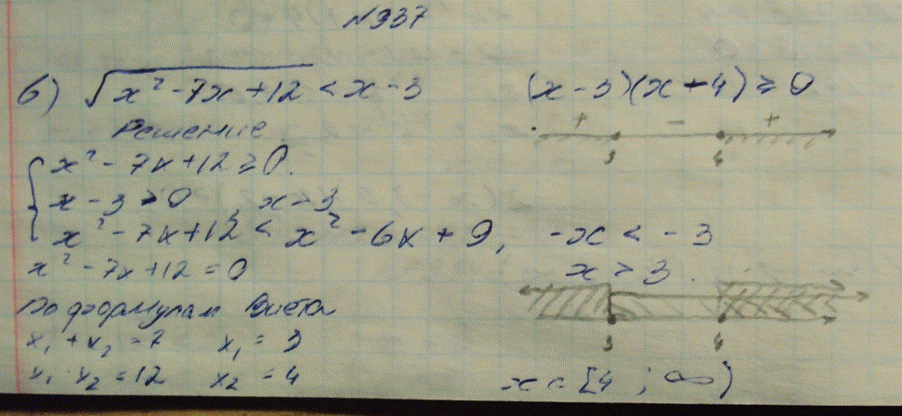 N937
б) √(x² - 7x + 12) < x - 3
Решение.
x² - 7x + 12 ≥ 0.
x - 3 > 0, x > 3
x² - 7x + 12 < x² - 6x + 9, -x < -3
x² - 7x + 12 = 0
x > 3.
По формулам Виета
x₁ + x₂ = 7 x₁ = 3
x₁ · x₂ = 12 x₂ = 4
(x - 3)(x - 4) ≥ 0
+ - +
3 4
3 4
x = [4 ; ∞)